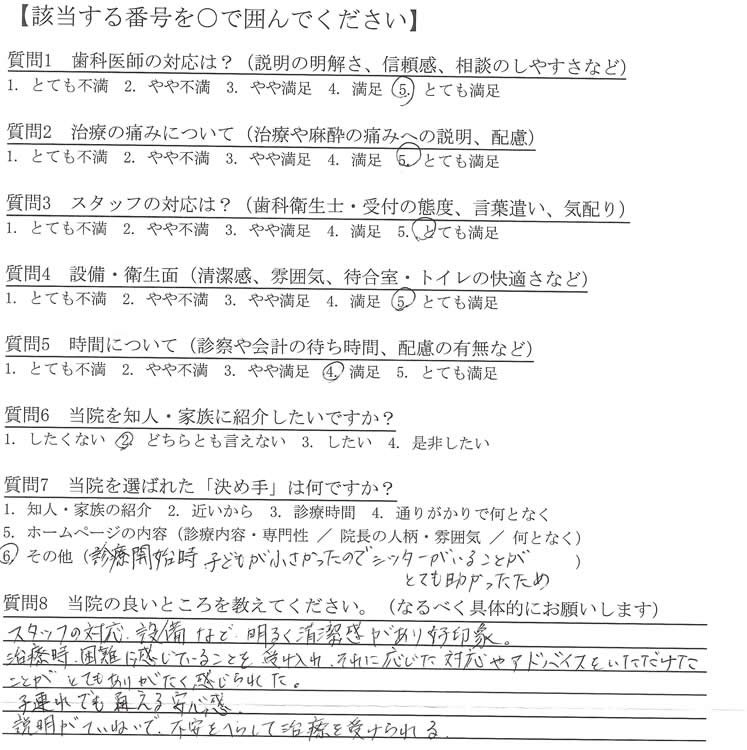 【該当する番号を○で囲んでください】
質問1 歯科医師の対応は?(説明の明解さ、信頼感、相談のしやすさなど)
1. とても不満 2. やや不満 3. やや満足 4. 満足 5. とても満足
質問2 治療の痛みについて(治療や麻酔の痛みへの説明、配慮)
1. とても不満 2. やや不満 3. やや満足 4. 満足 5. とても満足
質問3 スタッフの対応は?(歯科衛生士・受付の態度、言葉遣い、気配り)
1. とても不満 2. やや不満 3. やや満足 4. 満足 5. とても満足
質問4 設備・衛生面(清潔感、雰囲気、待合室・トイレの快適さなど)
1. とても不満 2. やや不満 3. やや満足 4. 満足 5. とても満足
質問5 時間について(診察や会計の待ち時間、配慮の有無など)
1. とても不満 2. やや不満 3. やや満足 4. 満足 5. とても満足
質問6 当院を知人・家族に紹介したいですか?
1. したくない 2. どちらとも言えない 3. したい 4. 是非したい
質問7 当院を選ばれた「決め手」は何ですか?
1. 知人・家族の紹介 2. 近いから 3. 診療時間 4. 通りがかりで何となく
5. ホームページの内容(診療内容・専門性 / 院長の人柄・雰囲気 / 何となく)
6. その他(診療開始時 子どもが小さかったのでシッターがいることが
とても助かったため )
質問8 当院の良いところを教えてください。(なるべく具体的にお願いします)
スタッフの対応、設備など、明るく清潔感があり好印象。
治療時、困難に感じていることを受け入れ、それに応じた対応やアドバイスをいただけた
ことがとてもありがたく感じられた。
子連れでも通える安心感。
説明がていねいで、不安をへらして治療を受けられる。